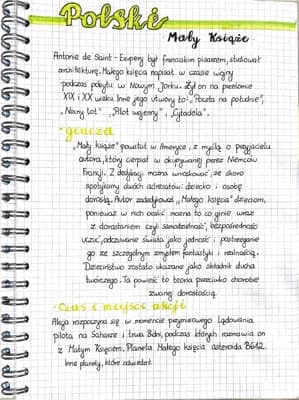 Polski
Mały Książę
Antonie de Saint - Exupery był francuskim pisarzem, studiował
architekturę. Małego księcia napisał w czasie wojny
podczas pobytu w Nowym Jorku. Żył on na przełomie
XIX i XX wieku. Inne jego utwory to: „Poczta na południe",
„Nocny lot" „Pilot wojenny", „Cytadela".
- geneza
„Mały książe" powstał w Ameryce, z myślą o przyjacielu
autora, który cierpiał w okupywanej przez Niemców
Francji. Z dedykacji można wnioskować, że skoro
spotykamy dwóch adresatów: dziecko i osobę
dorosłą. Autor zadedykował „Małego księcia" dzieciom,
ponieważ w nich ocalić można to co ginie wraz
z dorastaniem czyli samodzielność, bezpośredniość
uczuć, odczuwanie świata jako jedność i postrzeganie
go ze szczególnym zmysłem fantastyki i realnością.
Dzieciństwo zostało ukazane jako składnik ducha
twórczego. Ta powieść to teoria przeciwko chorobie
zwanej dorosłością.
- Czas i miejsce akcji
Akcja rozpoczyna się w momencie przymusowego lądowania
pilota na Saharze i trwa 8dni, podczas których rozmawia on
z Małym Księciem. Planeta Małego księcia asteroida B612.
Inne planety, które odwiedził